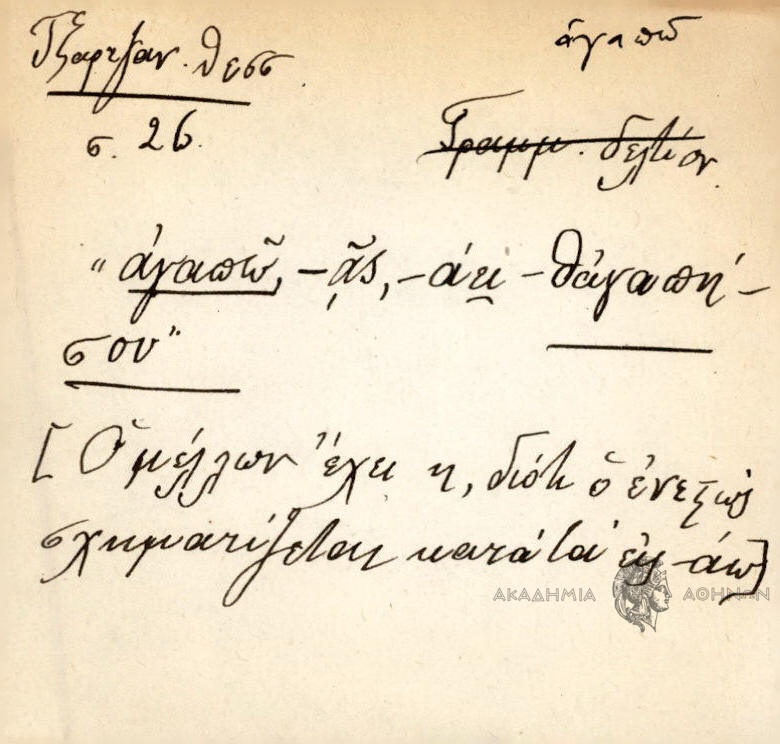 Τζαρτζάν. Θεσσ.
ἀγαπῶ
σ. 26.
Γραμμ. δελτίον
"ἀγαπῶ, -ᾷς, -άει -θἀγαπή-
σου"
[Ὁ μέλλων ἔχει η, διότι ὁ ἐνεστὼς
σχηματίζεται κατὰ τὰ εἰς -άω]
ΑΚΑΔΗΜΙΑ ΑΘΗΝΩΝ